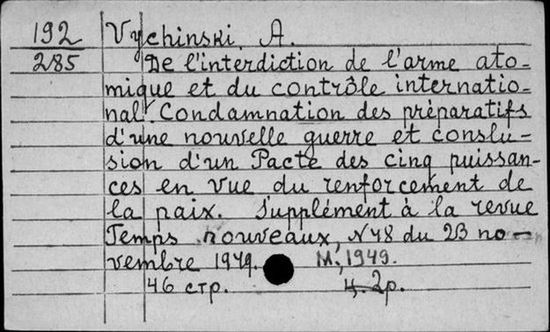 192 Vychinski, A.
285 De l'interdiction de l'arme ato-
mique et du contrôle internatio-
nal. Condamnation des préparatifs
d'une nouvelle guerre et conslu-
sion d'un Pacte des cinq puissan-
ces en vue du renforcement de
la paix. Supplément à la revue
Temps nouveaux, N48 du 23 no-
vembre 1949. M., 1949.
46 стр. ц. 2р.